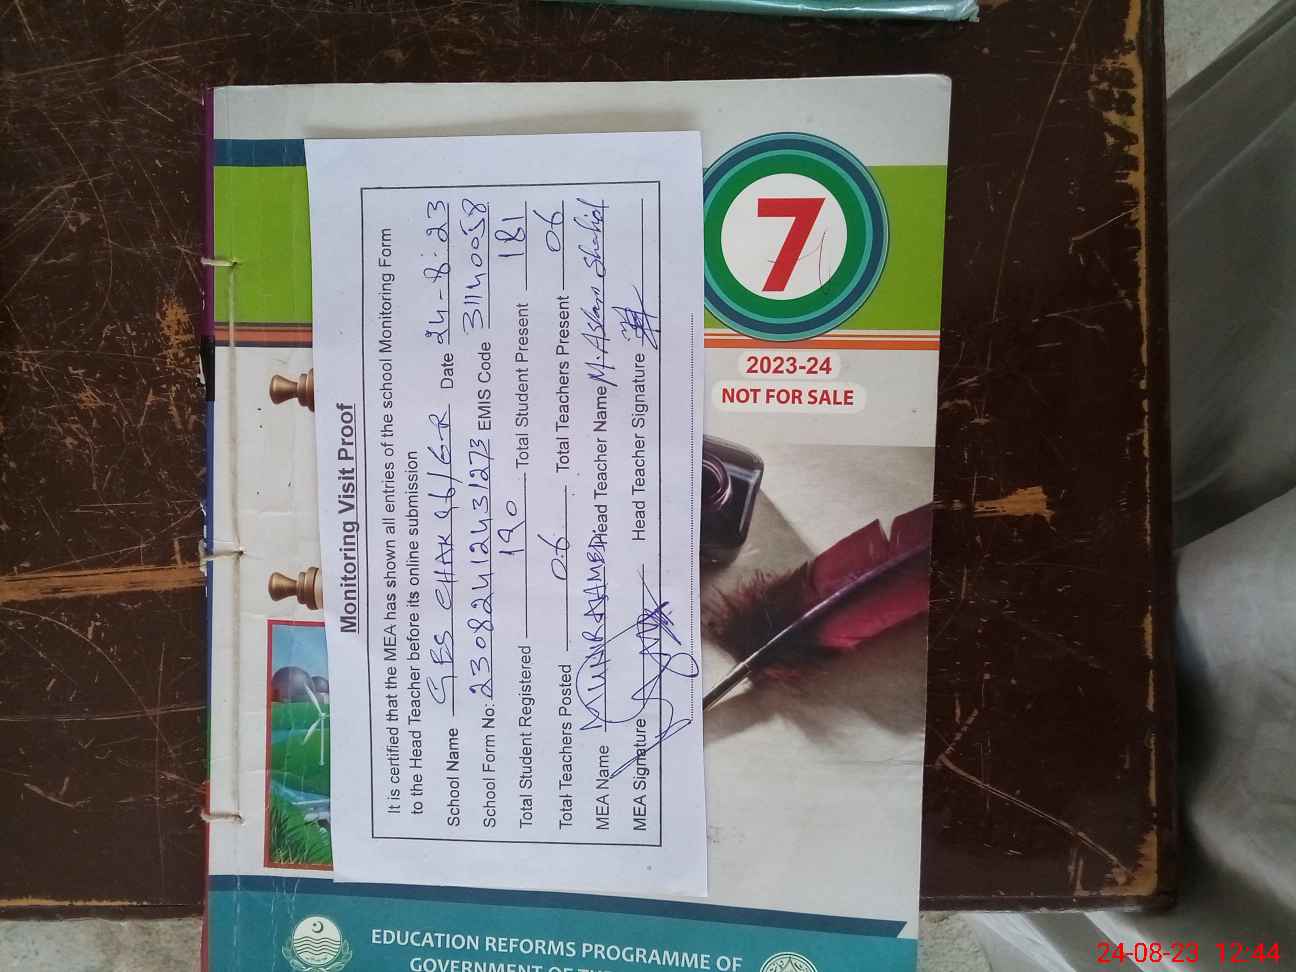 Monitoring Visit Proof
It is certified that the MEA has shown all entries of the school Monitoring Form
to the Head Teacher before its online submission
School Name GES CHAK 96/G-R Date 24-8-23
School Form No: 23082412431273 EMIS Code 31140058
Total Student Registered 190 Total Student Present 181
Total Teachers Posted 06 Total Teachers Present 06
MEA Name MUNIR AHMED Head Teacher Name M. Aslam Shahid
MEA Signature Head Teacher Signature
7
2023-24
NOT FOR SALE
EDUCATION REFORMS PROGRAMME OF
GOVERNMENT OF
24-08-23 12:44